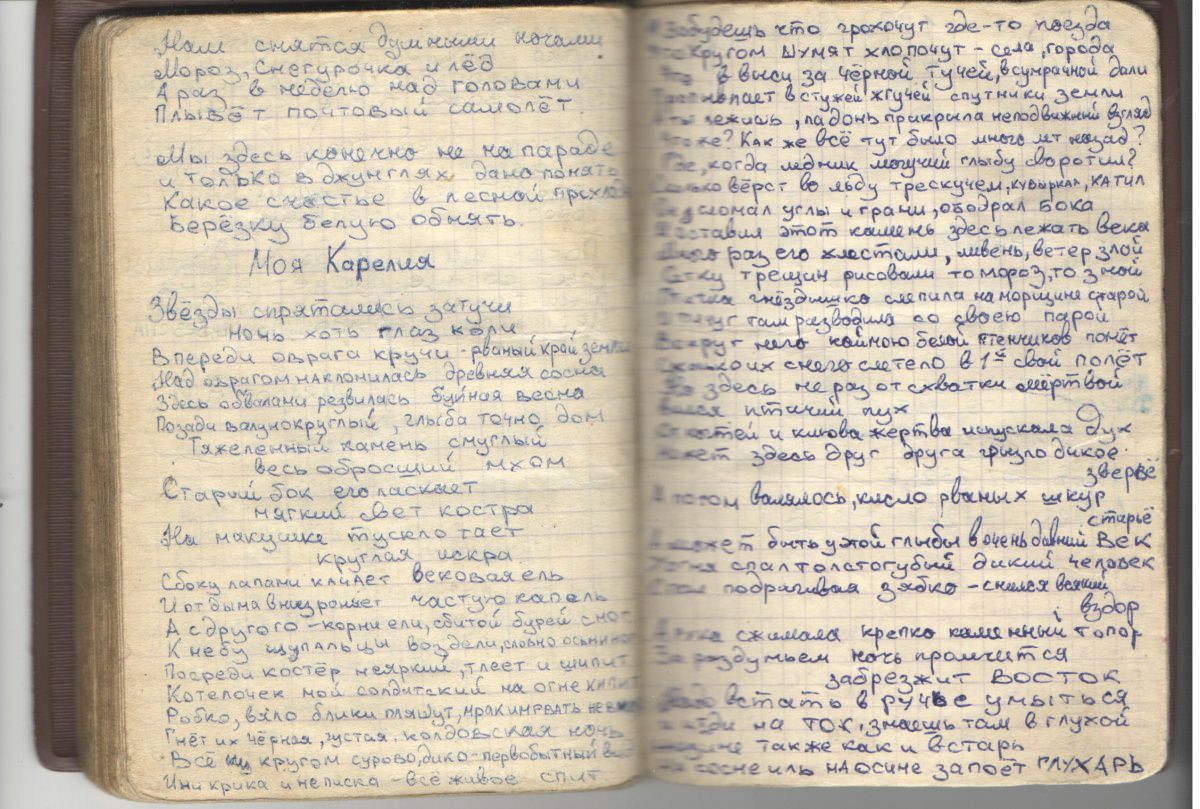 Нам снятся душными ночами
Мороз, Снегурочка и лёд
А раз в неделю над головами
Плывёт почтовый самолёт.
Мы здесь конечно не на параде
и только в джунглях дано понять
Какое счастье в лесной
Берёзку белую обнять.
Моя Карелия
Звёзды спрятались за тучи
ночь хоть глаз коли
Впереди оврага кручи - рваный край земли
Над оврагом наклонилась древняя сосна
Здесь обвалами резвилась буйная весна
Позади валун округлый, глыба точно дом
Тяжеленный камень смуглый
весь обросший мхом
Старый бок его ласкает
мягкий свет костра
На макушке тускло тает
круглая искра
Сбоку лапами качает вековая ель
И от дыма вниз роняет частую капель
А с другого - корни ели, сбитой бурей с ног
К небу щупальцы воздели, словно осьминог
Посреди костёр неяркий, тлеет и шипит
Котелочек мой солдатский на огне кипит
Робко, вяло блики пляшут, мрак им рвать не
Гнёт их чёрная, густая, колдовская ночь
Всё кругом сурово, дико - первобытный
И ни крика и ни писка - всё живое спит.
Забудешь что грохочут где-то поезда
Кругом шумят хлопочут - села, города
Что в высу за чёрной тучей, в сумрачной дали
в стуже жгучей спутники земли
А ты лежишь, ладонь прикрыла неподвижный взгляд
Что же? Как же всё тут было много лет назад?
Где, когда ледник могучий глыбу своротил?
Сколько вёрст во льду трескучем, кувыркал, катил
сломал углы и грани, ободрал бока
И оставил этот камень здесь лежать века
Много раз его хлестали, ливень, ветер злой
Сетку трещин рисовали то мороз, то зной
Птичка гнёздышко слепила на морщине старой
там разводила со своею парой
Вокруг него каймою белой птенчиков помёт
Сколько их с него слетело в 1й свой полёт
Но здесь не раз от схватки мёртвой
вился птичий пух
От когтей и клюва жертва испускала Дух
Может здесь друг друга грызло дикое
зверьё
А потом валялось, кисло рваных шкур
старьё
А может быть у этой глыбы в очень давний Век
У огня спал толстогубый дикий человек
Спал подрагивая зябко - снился всякий
вздор
А рука сжимала крепко каменный топор
За раздумьем ночь промчится
забрезжит Восток
Надо встать в ручье умыться
и идти на ток, знаешь там в глухой
также как и встарь
На сосне иль на осине запоёт ГЛУХАРЬ